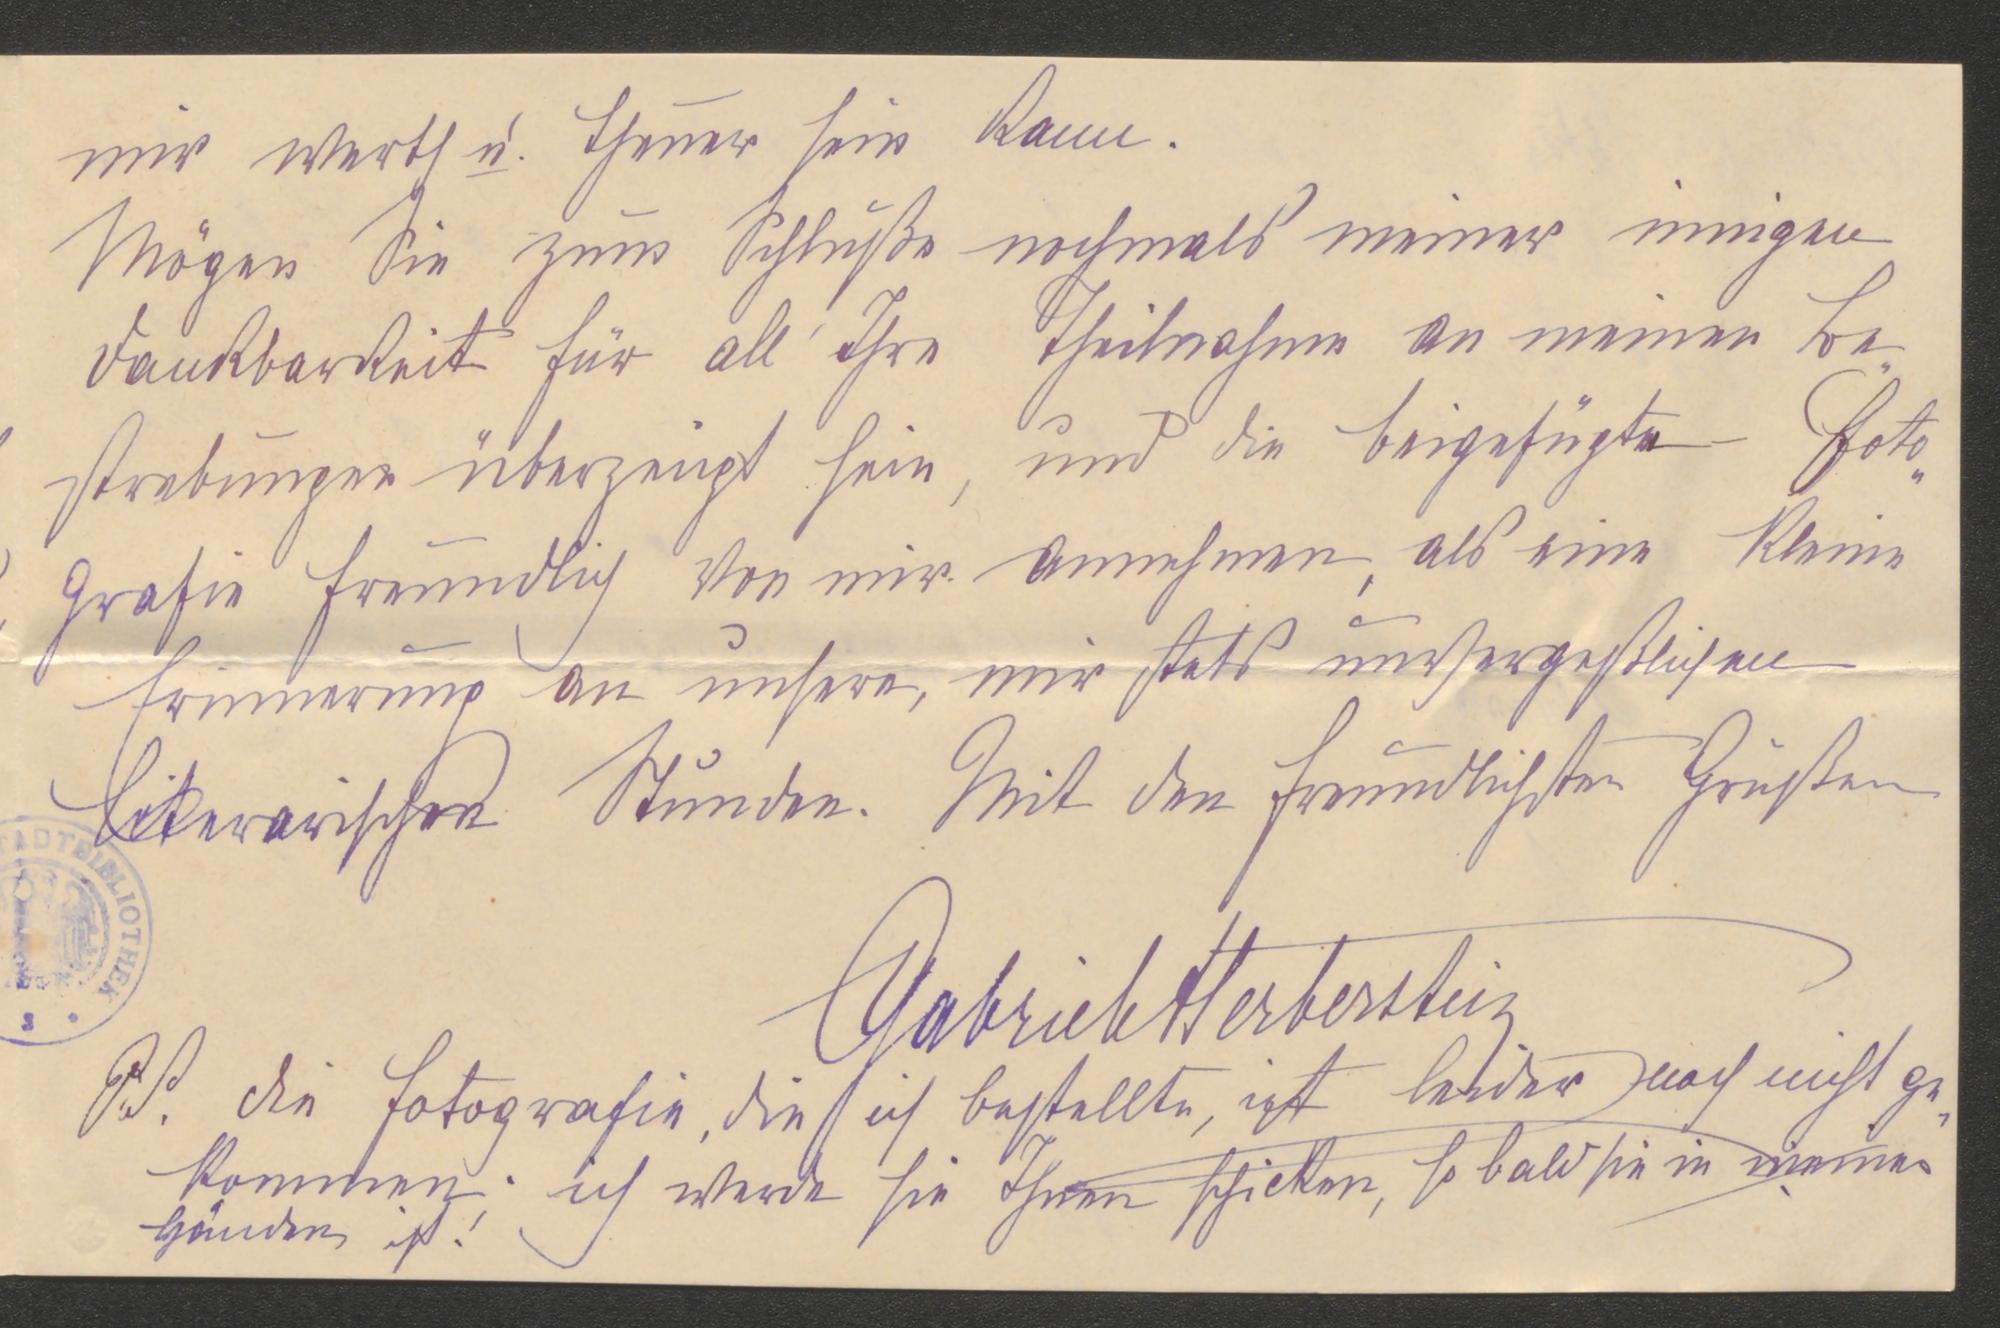 mir werth u. theuer sein kann.
Mögen Sie zum Schluße nochmals meiner innigen
Dankbarkeit für all' Ihre Theilnahme an meinen Be„
strebungen überzeugt sein, und die beigefügte Foto„
grafie freundlich von mir annehmen, als eine kleine
Erinnerung an unsere, mir stets unvergeßlichen
literarischen Stunden. Mit den freundlichsten Grüßen
STADTBIBLIOTHEK
Gabriele Herberstein
P.S. die Fotografie, die ich bestellte, ist leider noch nicht ge„
kommen; ich werde sie Ihnen schicken, so bald sie in meinen
Händen ist!